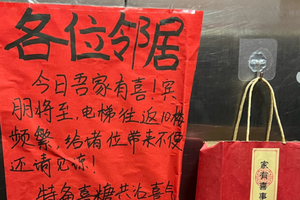 各位邻居
今日吾家有喜！宾
朋将至，电梯往返10楼
频繁，给诸位带来不便
还请见谅！
特备喜糖共沾喜气
家有喜事